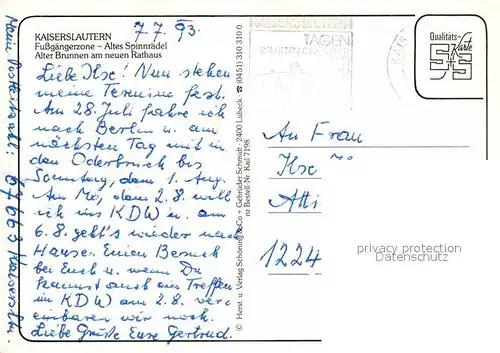 7.7.93.
KAISERSLAUTERN
Fußgängerzone – Altes Spinnrädel
Alter Brunnen am neuen Rathaus
Liebe Ilse! Nun stehen
meine Termine fest.
Am 28. Juli fahre ich
nach Berlin u. am
nächsten Tag mit in
den Oderbruch bis
Sonntag, dem 1. Aug.
Am Mo, dem 2.8. will
ich ins KDW u. am
6.8. geht's wieder nach
Hause. Einen Besuch
bei Euch u. wenn Du
kannst auch ein Treffen
im KDW am 2.8. ver-
einbaren wir noch.
Liebe Grüße Eure Gertrud.
Meine Postleitzahl: 67663 Kaisersln.
© Herst. u. Verlag Schöning & Co + Gebrüder Schmidt, 2400 Lübeck ☎ (0451) 310 310 0
nz Bestell-Nr. Kail 7198
KAISERSLAUTERN
TAGEN
Qualitäts-
Karte
S+S
An Frau
Ilse
1224
privacy protection
Datenschutz